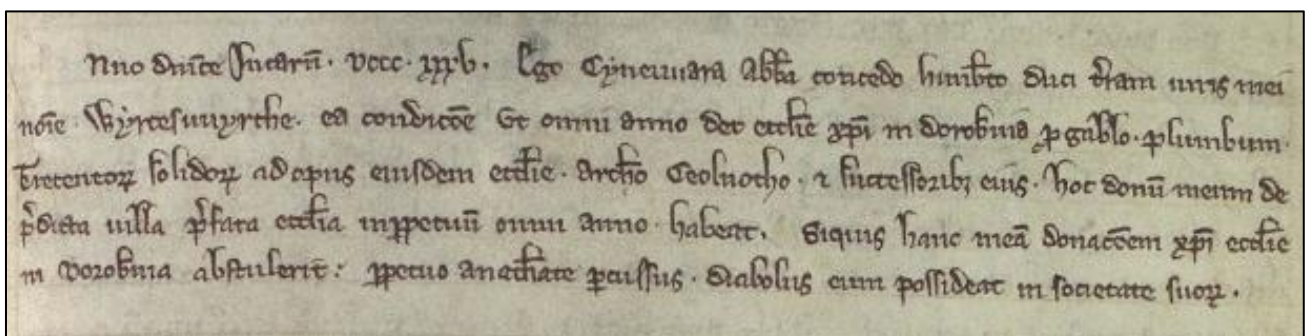 nno dn̄ice Incarn̄. dccc. xxxv. Ego Cynewara Abb̄a concedo humb̄to duci t̄ram iuris mei
noīe Wyrcesuuyrthe. ea condicōe Vt omni anno det eccl̄ie xp̄i in dorob̄nia ꝑ gablo. plumbum.
Trecentoꝝ solidoꝝ ad opus eiusdem eccl̄ie. archō Ceolnotho. ⁊ successoribꝫ eius. hoc donū meum de
p̄dicta uilla p̄fata eccl̄ia inꝑpetuū omni anno habeat. Siquis hanc meā donacōem xp̄i eccl̄ie
in dorob̄nia abstulerit: ꝑpetuo anath̄ate ꝑcussus. diabolus eum possideat in societate suoꝝ.